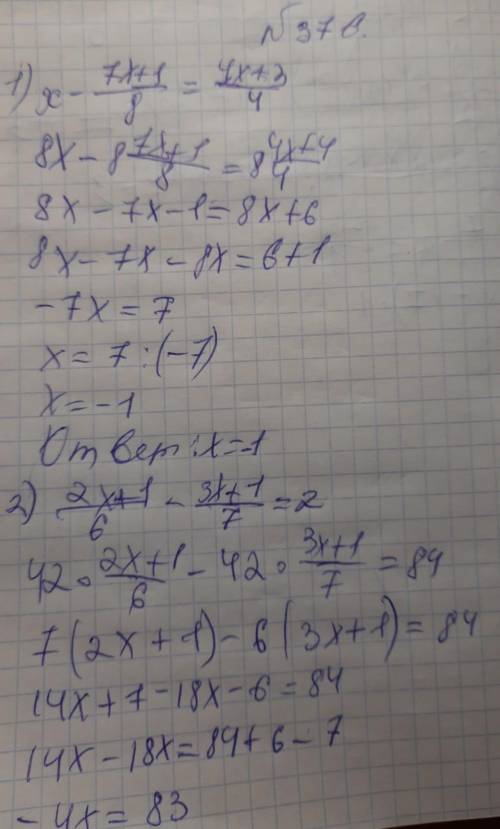 №376.
1) x - (7x+1)/8 = (4x+3)/4
8x - 8 (7x+1)/8 = 8 (4x+4)/4
8x - 7x - 1 = 8x + 6
8x - 7x - 8x = 6 + 1
-7x = 7
x = 7 : (-7)
x = -1
Ответ: x = -1
2) (2x+1)/6 - (3x+1)/7 = 2
42 · (2x+1)/6 - 42 · (3x+1)/7 = 84
7(2x+1) - 6(3x+1) = 84
14x + 7 - 18x - 6 = 84
14x - 18x = 84 + 6 - 7
-4x = 83